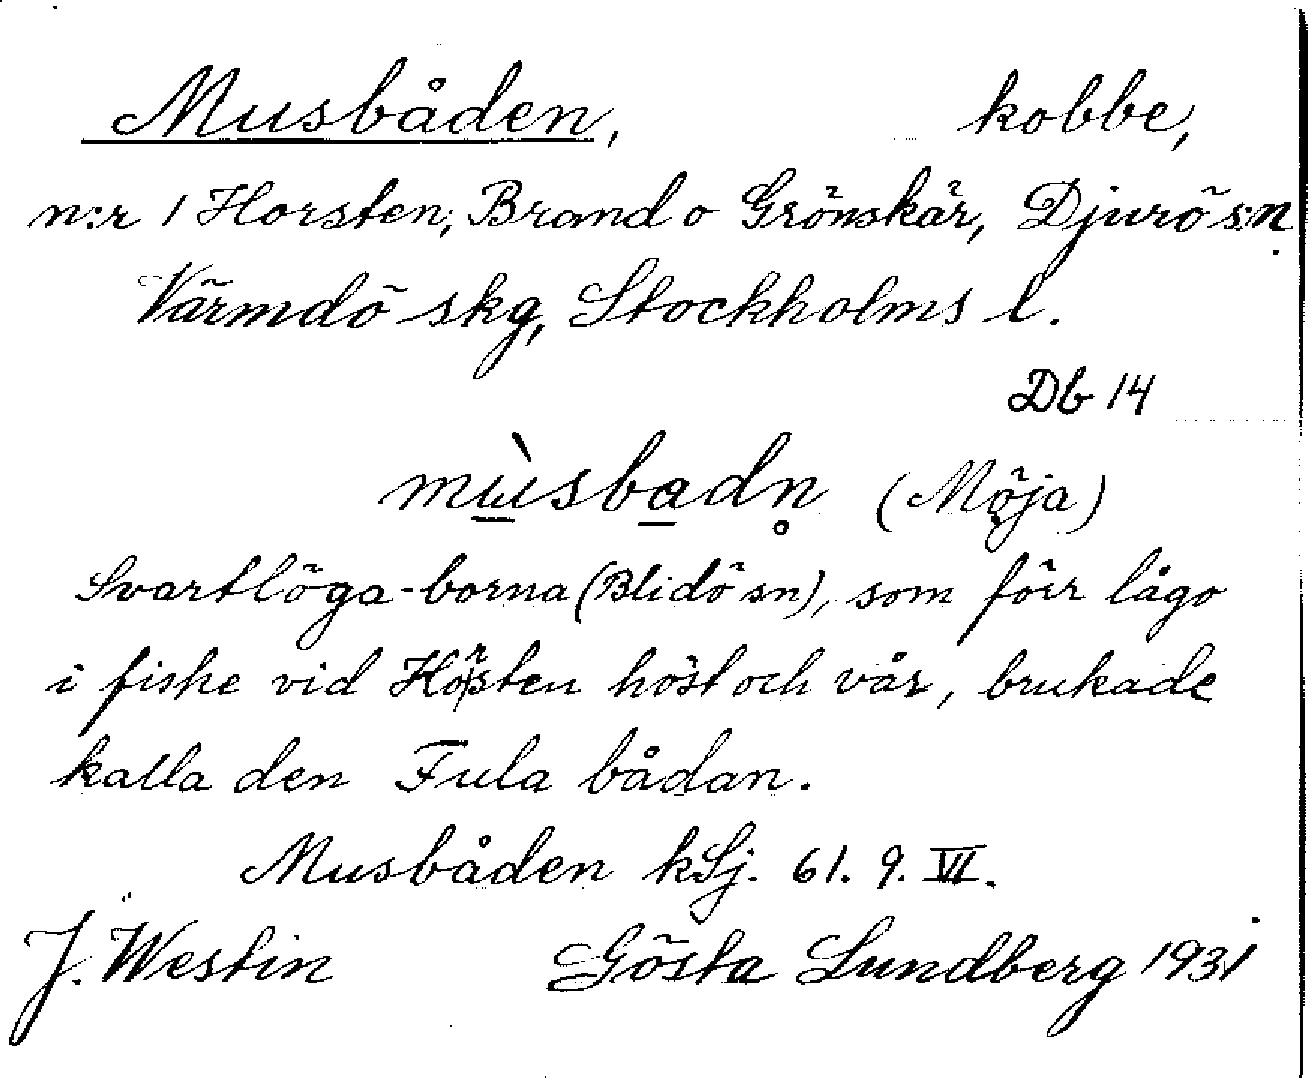 Musbåden, kobbe,
n:r 1 Horsten, Brand o Grönskär, Djurö sn.
Värmdö skg, Stockholms l.
Db 14
mùsbadn̥ (Möja)
Svartlöga-borna (Blidö sn), som förr lågo
i fiske vid Horsten höst och vår, brukade
kalla den Fula bådan.
Musbåden kSj. 61. 9. VI.
J. Westin Gösta Lundberg 1931